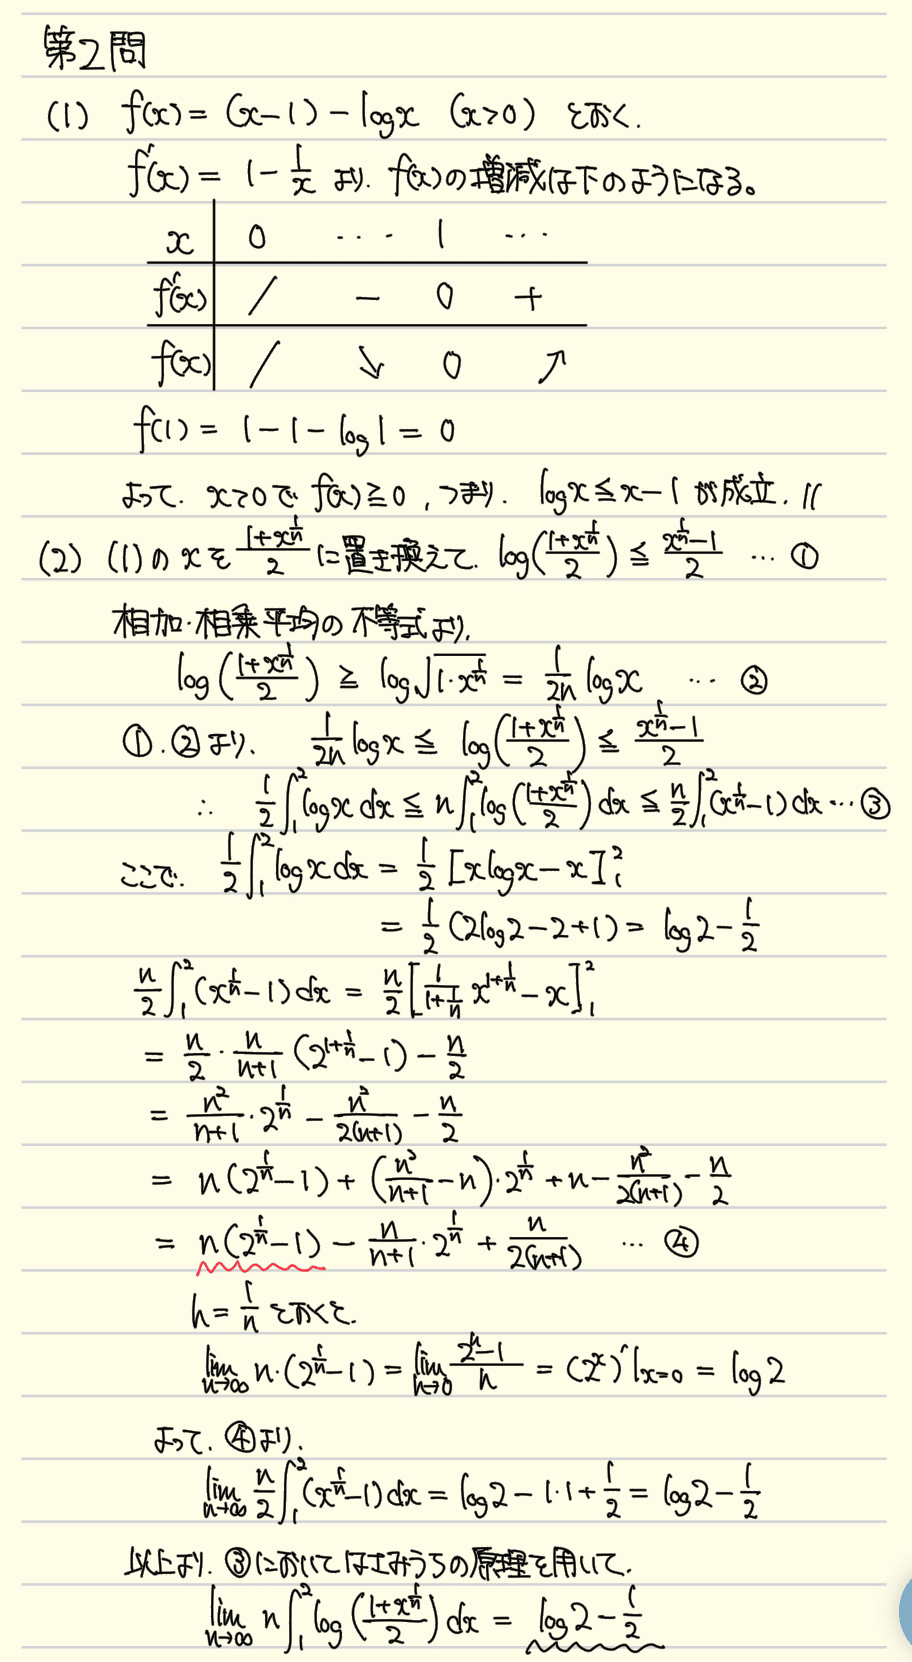 第2問
(1) f(x) = (x-1) - log x (x>0) とおく.
f'(x) = 1 - 1/x より. f(x)の増減は下のようになる。
x 0 ... 1 ...
f'(x) / - 0 +
f(x) / ↘ 0 ↗
f(1) = 1-1-log1 = 0
よって. x>0で f(x)≧0, つまり. log x ≦ x-1 が成立. //
(2) (1)の x を (1+x^{1/n})/2 に置き換えて. log((1+x^{1/n})/2) ≦ (x^{1/n}-1)/2 ... ①
相加・相乗平均の不等式より.
log((1+x^{1/n})/2) ≧ log√(1・x^{1/n}) = 1/(2n) log x ... ②
①.②より. 1/(2n) log x ≦ log((1+x^{1/n})/2) ≦ (x^{1/n}-1)/2
∴ 1/2 ∫_1^2 log x dx ≦ n∫_1^2 log((1+x^{1/n})/2) dx ≦ n/2 ∫_1^2 (x^{1/n}-1) dx ... ③
ここで. 1/2 ∫_1^2 log x dx = 1/2 [x log x - x]_1^2
= 1/2 (2log2-2+1) = log2 - 1/2
n/2 ∫_1^2 (x^{1/n}-1) dx = n/2 [1/(1+1/n) x^{1+1/n} - x]_1^2
= n/2 ・ n/(n+1) (2^{1+1/n}-1) - n/2
= n²/(n+1) ・ 2^{1/n} - n²/(2(n+1)) - n/2
= n(2^{1/n}-1) + (n²/(n+1) - n)・2^{1/n} + n - n²/(2(n+1)) - n/2
= n(2^{1/n}-1) - n/(n+1) ・ 2^{1/n} + n/(2(n+1)) ... ④
h = 1/n とおくと.
lim_{n→∞} n・(2^{1/n}-1) = lim_{h→0} (2^h-1)/h = (2^x)'|_{x=0} = log2
よって. ④より.
lim_{n→∞} n/2 ∫_1^2 (x^{1/n}-1) dx = log2 - 1・1 + 1/2 = log2 - 1/2
以上より. ③においてはさみうちの原理を用いて.
lim_{n→∞} n∫_1^2 log((1+x^{1/n})/2) dx = log2 - 1/2